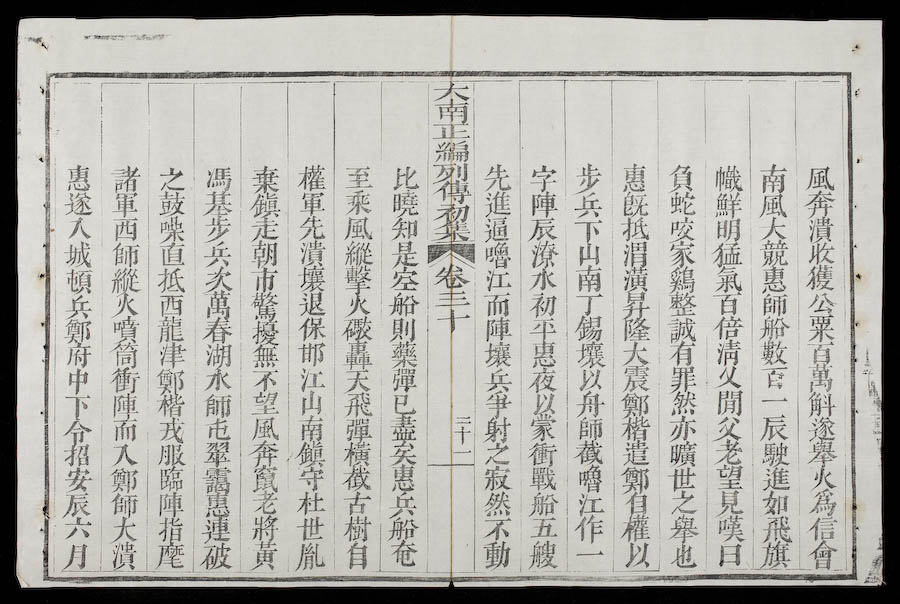 風奔潰收獲公粟百萬斛遂舉火爲信會
南風大競惠師船數百一辰駛進如飛旗
幟鮮明猛氣百倍淸乂閒父老望見嘆曰
負蛇咬家鷄整誠有罪然亦曠世之舉也
惠旣抵渭潢昇隆大震鄭楷遣鄭自權以
步兵下山南丁錫壤以舟師截嚕江作一
字陣辰潦水初平惠夜以蒙衝戰船五艘
先進逼嚕江而陣壤兵爭射之寂然不動
大南正編列傳初集
卷三十
三十一
比曉知是空船則藥彈已盡矣惠兵船奄
至乘風縱擊火礮轟天飛彈橫截古樹自
權軍先潰壤退保邯江山南鎭守杜世胤
棄鎭走朝市驚擾無不望風奔竄老將黃
馮基步兵次萬春湖水師屯翠靄惠連破
之鼓噪直抵西龍津鄭楷戎服臨陣指麾
諸軍西師縱火噴筒衝陣而入鄭師大潰
惠遂入城頓兵鄭府中下令招安辰六月